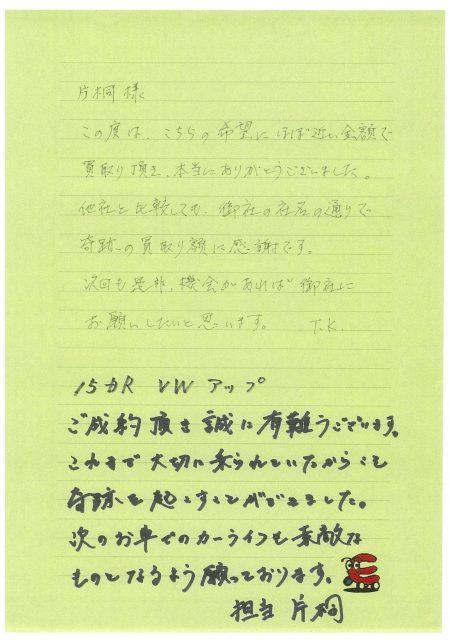 片桐様
この度は、こちらの希望にほぼ近い金額で
買取り頂き、本当にありがとうございました。
他社と比較しても、御社の社名の通りで
奇跡の買取り額に感謝です。
次回も是非、機会があれば御社に
お願いしたいと思います。 T.K.
15カR VW アップ
ご成約頂き誠に有難うございます。
これまで大切に乗られていたからこそ
奇跡を起こすことができました。
次のお車でのカーライフも素敵な
ものとなるよう願っております。
担当 片桐